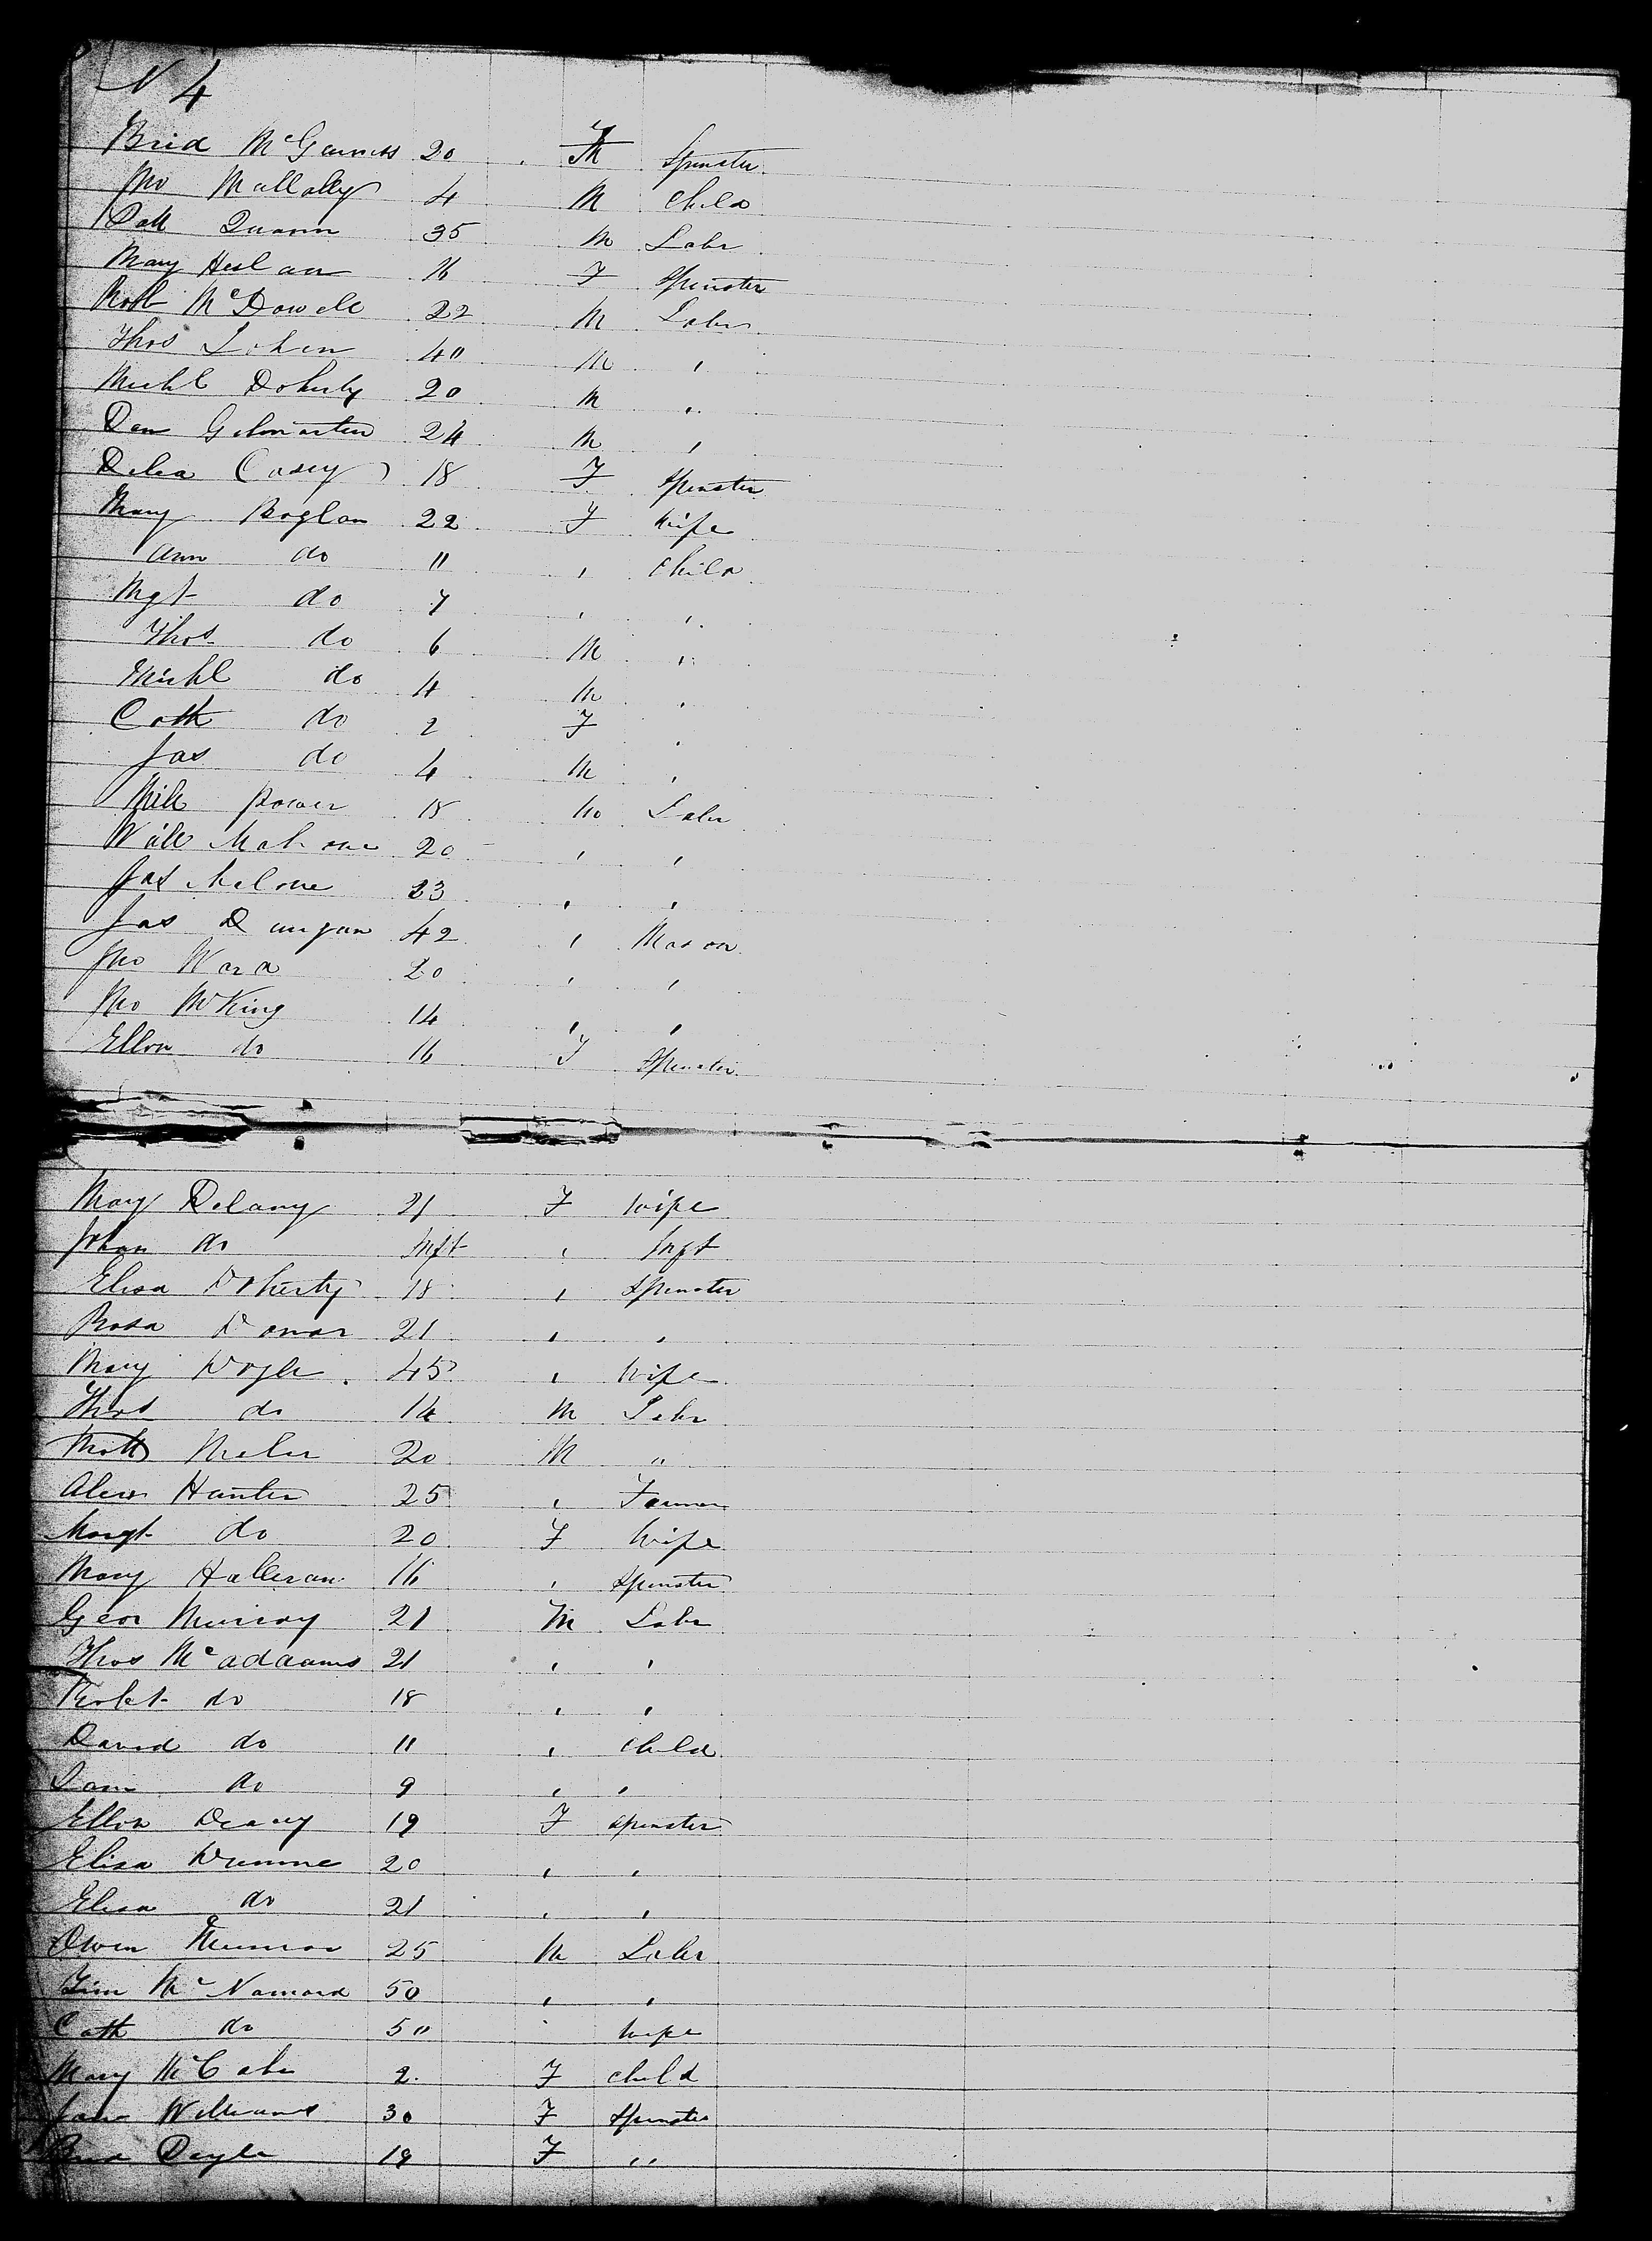 N 4
Brid McGuiness 20 F Spinster
Jno Mullally 4 M Child
Patk Quann 35 M Labr
Mary Heslan 16 F Spinster
Robt McDowell 22 M Labr
Thos Lohen 40 M "
Michl Doherty 20 M "
Dan Gilmartin 24 M "
Delia Casey 18 F Spinster
Mary Boylan 22 F Wife
Ann do 11 " Child
Mgt do 7 " "
Thos do 6 M "
Michl do 4 M "
Cath do 2 F "
Jas do 4 M "
Mick Power 18 M Labr
Will Malone 20 " "
Jas Malone 23 " "
Jas Dungan 42 " Mason
Jno Ward 20 " "
Jno McKing 14 " "
Ellen do 16 F Spinster
Mary Delany 21 F Wife
Johan do Inft " Inft
Eliza Doherty 18 " Spinster
Rosa 21 " "
Mary Doyle 45 " Wife
Thos do 14 M Labr
Matt 20 M "
Alexr Hunter 25 " Farmer
Margt do 20 F Wife
Mary Halleran 16 " Spinster
Geor Murray 21 M Labr
Thos McAdaams 21 " "
Robt do 18 " "
David do 11 " Child
Sam do 9 " "
Ellen Deasy 19 F Spinster
Eliza Dunne 20 " "
Eliza do 21 " "
Owen Munroe 25 M Labr
Tim McNamara 50 " "
Cath do 50 Wife
Mary McCabe 2 F Child
Jane Williams 30 F Spinster
Brid Doyle 19 F "